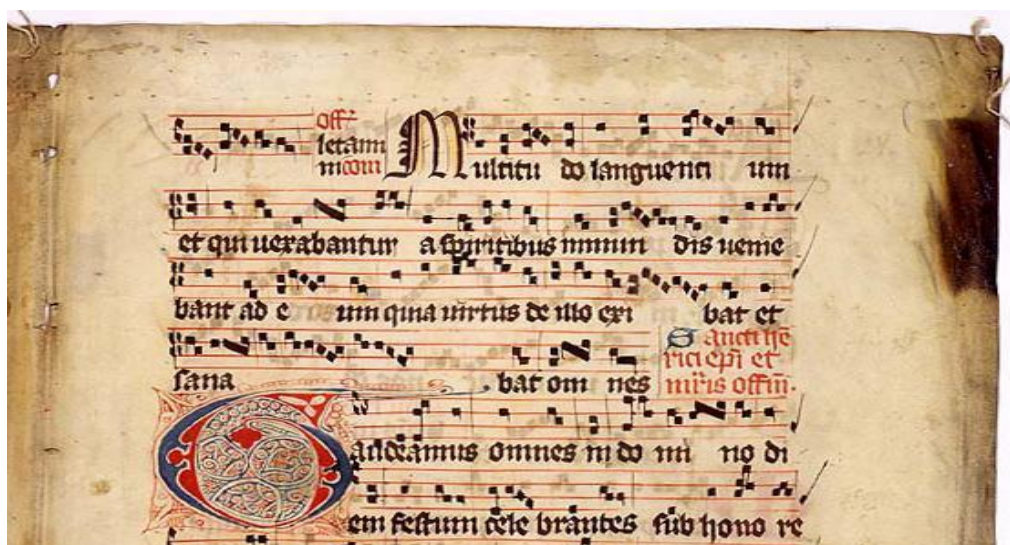 Offr
letamini com Multitudo languenti um
et qui uexabantur a spiritibus inmun dis uenie
bant ad e um quia uirtus de illo exi bat et
sana bat om nes
Sancti he
rici epi et
mris offm.
Gaudeamus omnes in do mi no di
em festum cele brantes sub hono re